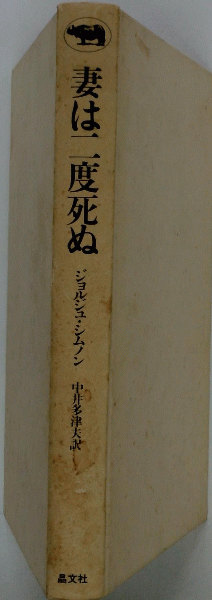 妻は二度死ぬ
ジョルジュ・シムノン
中井多津夫訳
晶文社